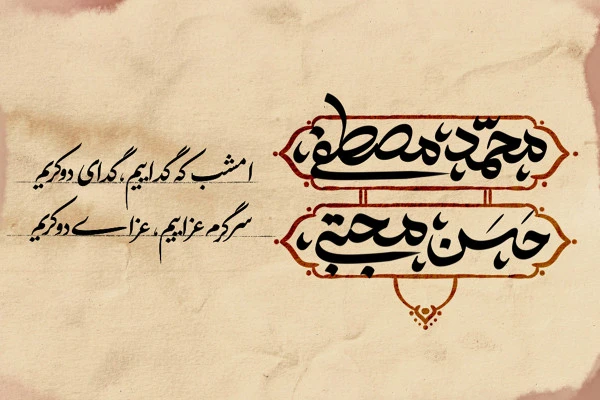 محمد مصطفی
حسن مجتبی
امشب که گداییم، گدای دو کریم
سرگرم عزاییم، عزاے دو کریم